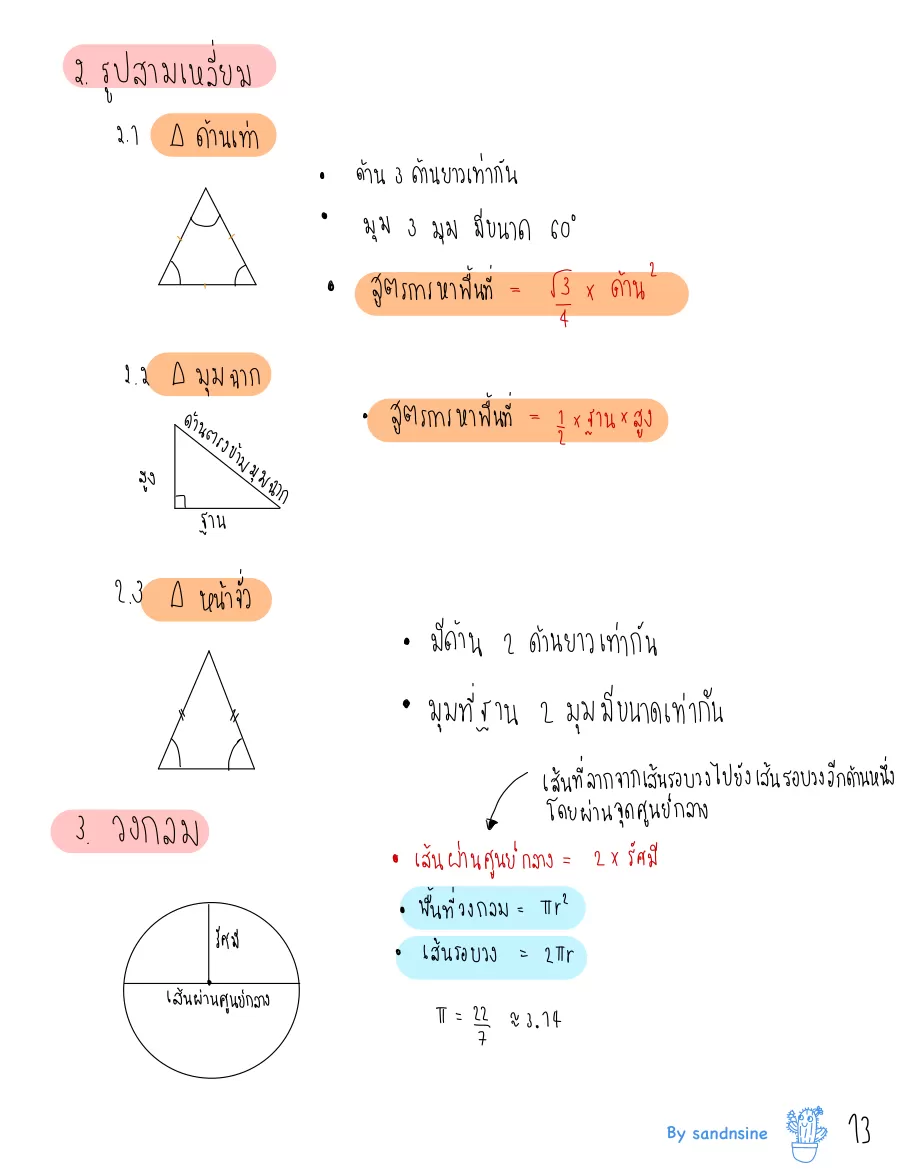 2. รูปสามเหลี่ยม
2.1 △ ด้านเท่า
• ด้าน 3 ด้านยาวเท่ากัน
• มุม 3 มุม มีขนาด 60°
• สูตรการหาพื้นที่ = √3/4 × ด้าน²
2.2 △ มุมฉาก
• สูตรการหาพื้นที่ = 1/2 × ฐาน × สูง
ด้านตรงข้ามมุมฉาก
สูง
ฐาน
2.3 △ หน้าจั่ว
• มีด้าน 2 ด้านยาวเท่ากัน
• มุมที่ฐาน 2 มุมมีขนาดเท่ากัน
เส้นที่ลากจากเส้นรอบวงไปยังเส้นรอบวงอีกด้านหนึ่ง
โดยผ่านจุดศูนย์กลาง
3. วงกลม
• เส้นผ่านศูนย์กลาง = 2 × รัศมี
• พื้นที่วงกลม = πr²
• เส้นรอบวง = 2πr
รัศมี
เส้นผ่านศูนย์กลาง
π = 22/7 ≈ 3.14
By sandnsine
13